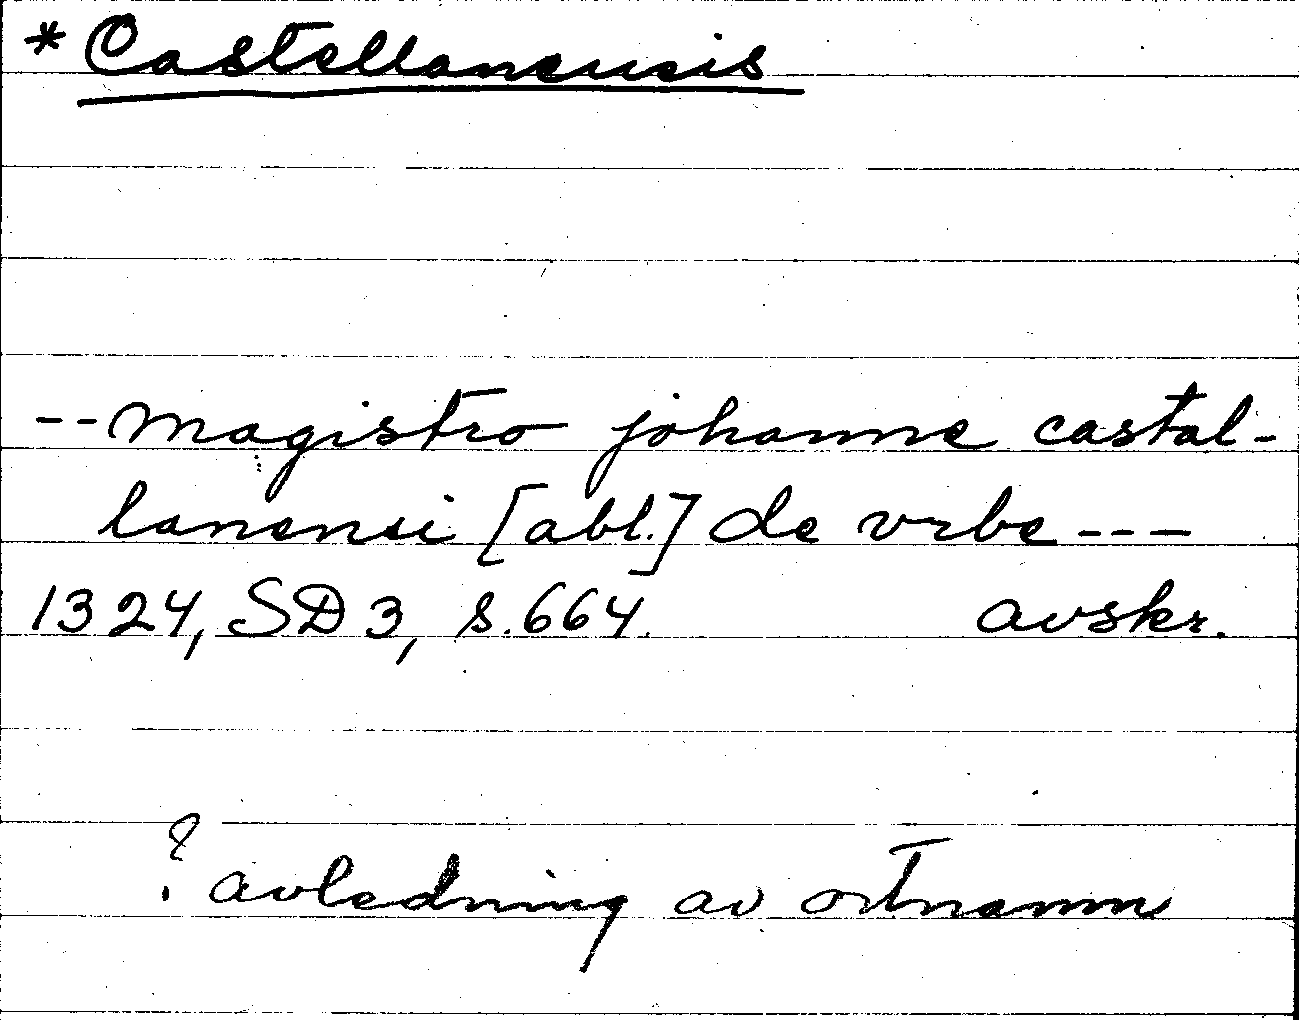 *Castellanensis
--magistro johanne castal-
lanensi [abl.] de vrbe---
1324, SD 3, s. 664. avskr.
? avledning av ortnamn